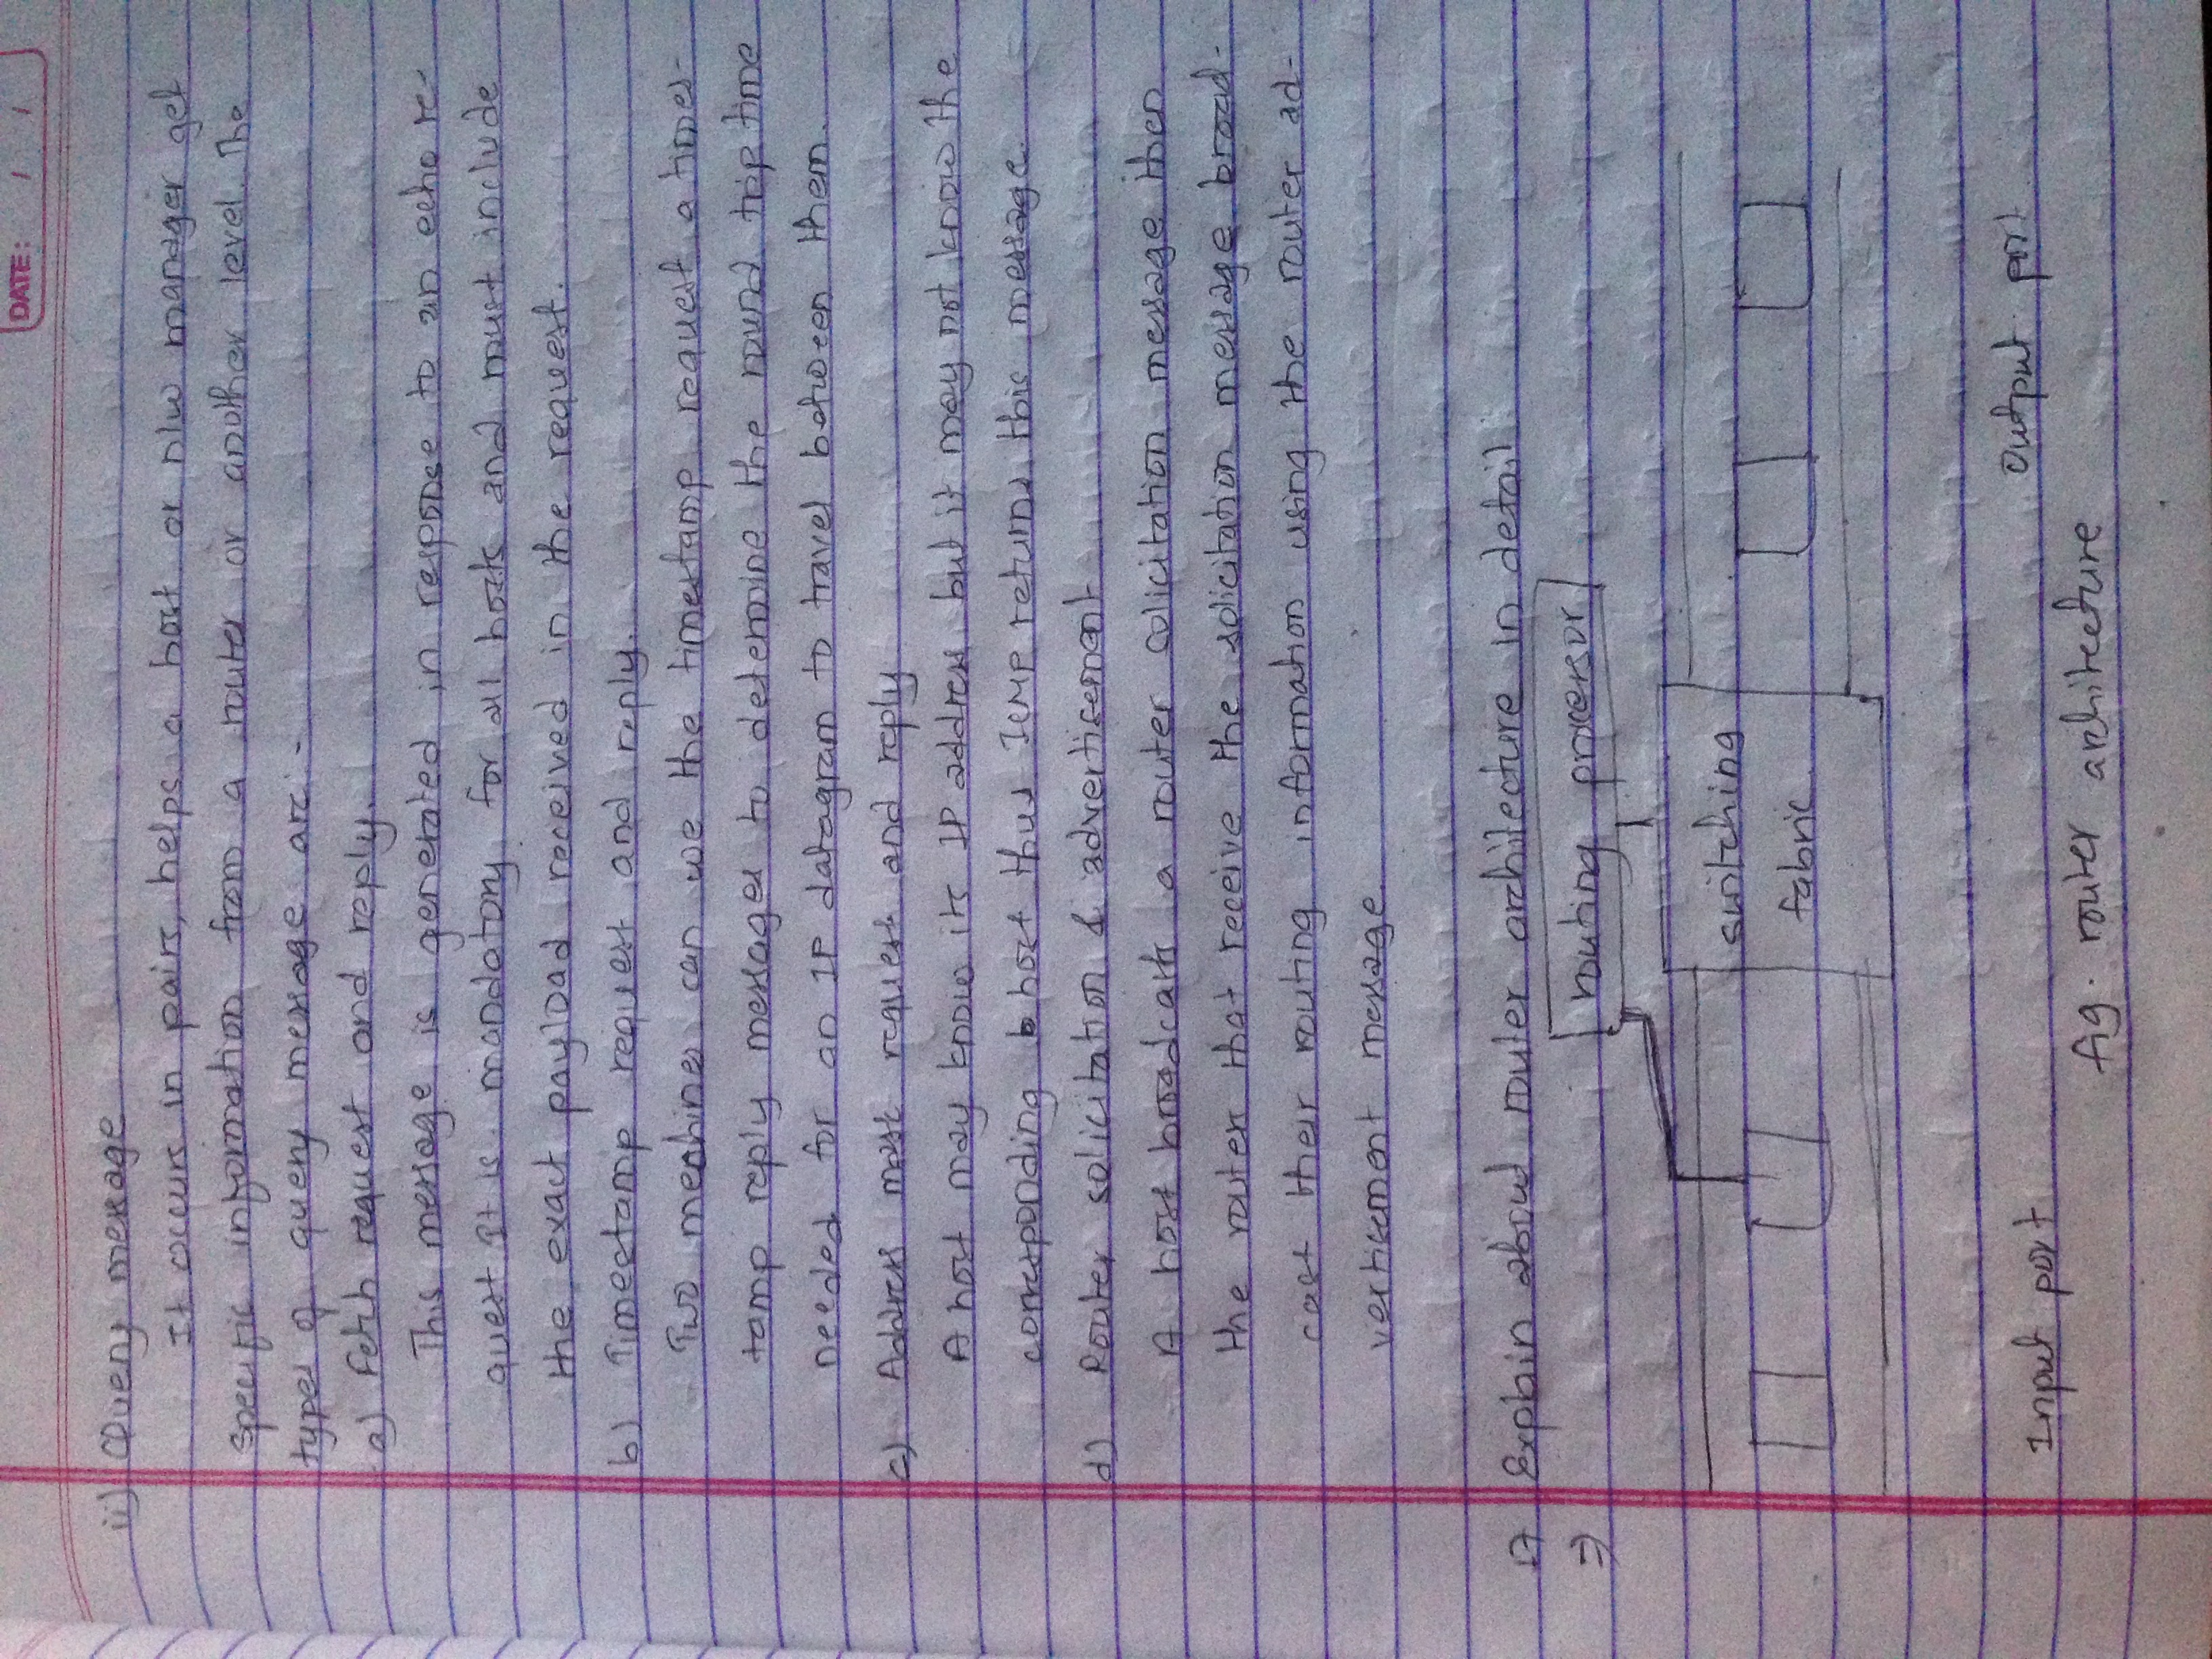 DATE: / /
ii) Query message
It occurs in pairs, helps a host or n/w manager get
specific information from a router or another level. The
types of query message are:-
a) Fetch request and reply.
This message is generated in response to an echo re-
quest It is mandatory for all hosts and must include
the exact payload received in the request.
b) Timestamp request and reply.
Two mechines can use the timestamp request a times-
tamp reply messages to determine the round trip time
needed for an IP datagram to travel between them.
c) Address mask request and reply
A host may know its IP address but it may not know the
corresponding host thus ICMP returns this message.
d) Router solicitation & advertisement
A host broadcasts a router solicitation message then
the routers that receive the solicitation message broad-
cast their routing information using the router ad-
vertisement message.
Explain about router architecture in detail.
⇒ routing processor
switching
fabric
Input port Output port
fig. router architecture